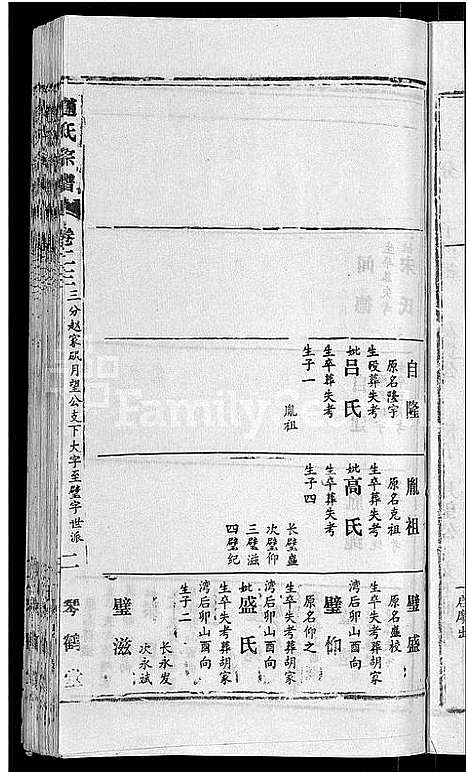 自隆
原名隆宇
生殁葬失考
妣吕氏
生卒葬失考
生子一
胤祖
胤祖
原名克祖
生卒葬失考
妣高氏
生卒葬失考
生子四
长璧盛
次璧仰
三璧滋
四璧纪
璧盛
原名盛校
生卒失考葬胡家
湾后卯山酉向
璧仰
原名仰之
生卒失考葬胡家
湾后卯山酉向
妣盛氏
生卒失考葬胡家
湾后卯山酉向
生子二
长永发
次永斌
璧滋
赵氏宗谱
卷二三
三分赵家矶月望公支下大字至璧字世派
二
琴鹤堂